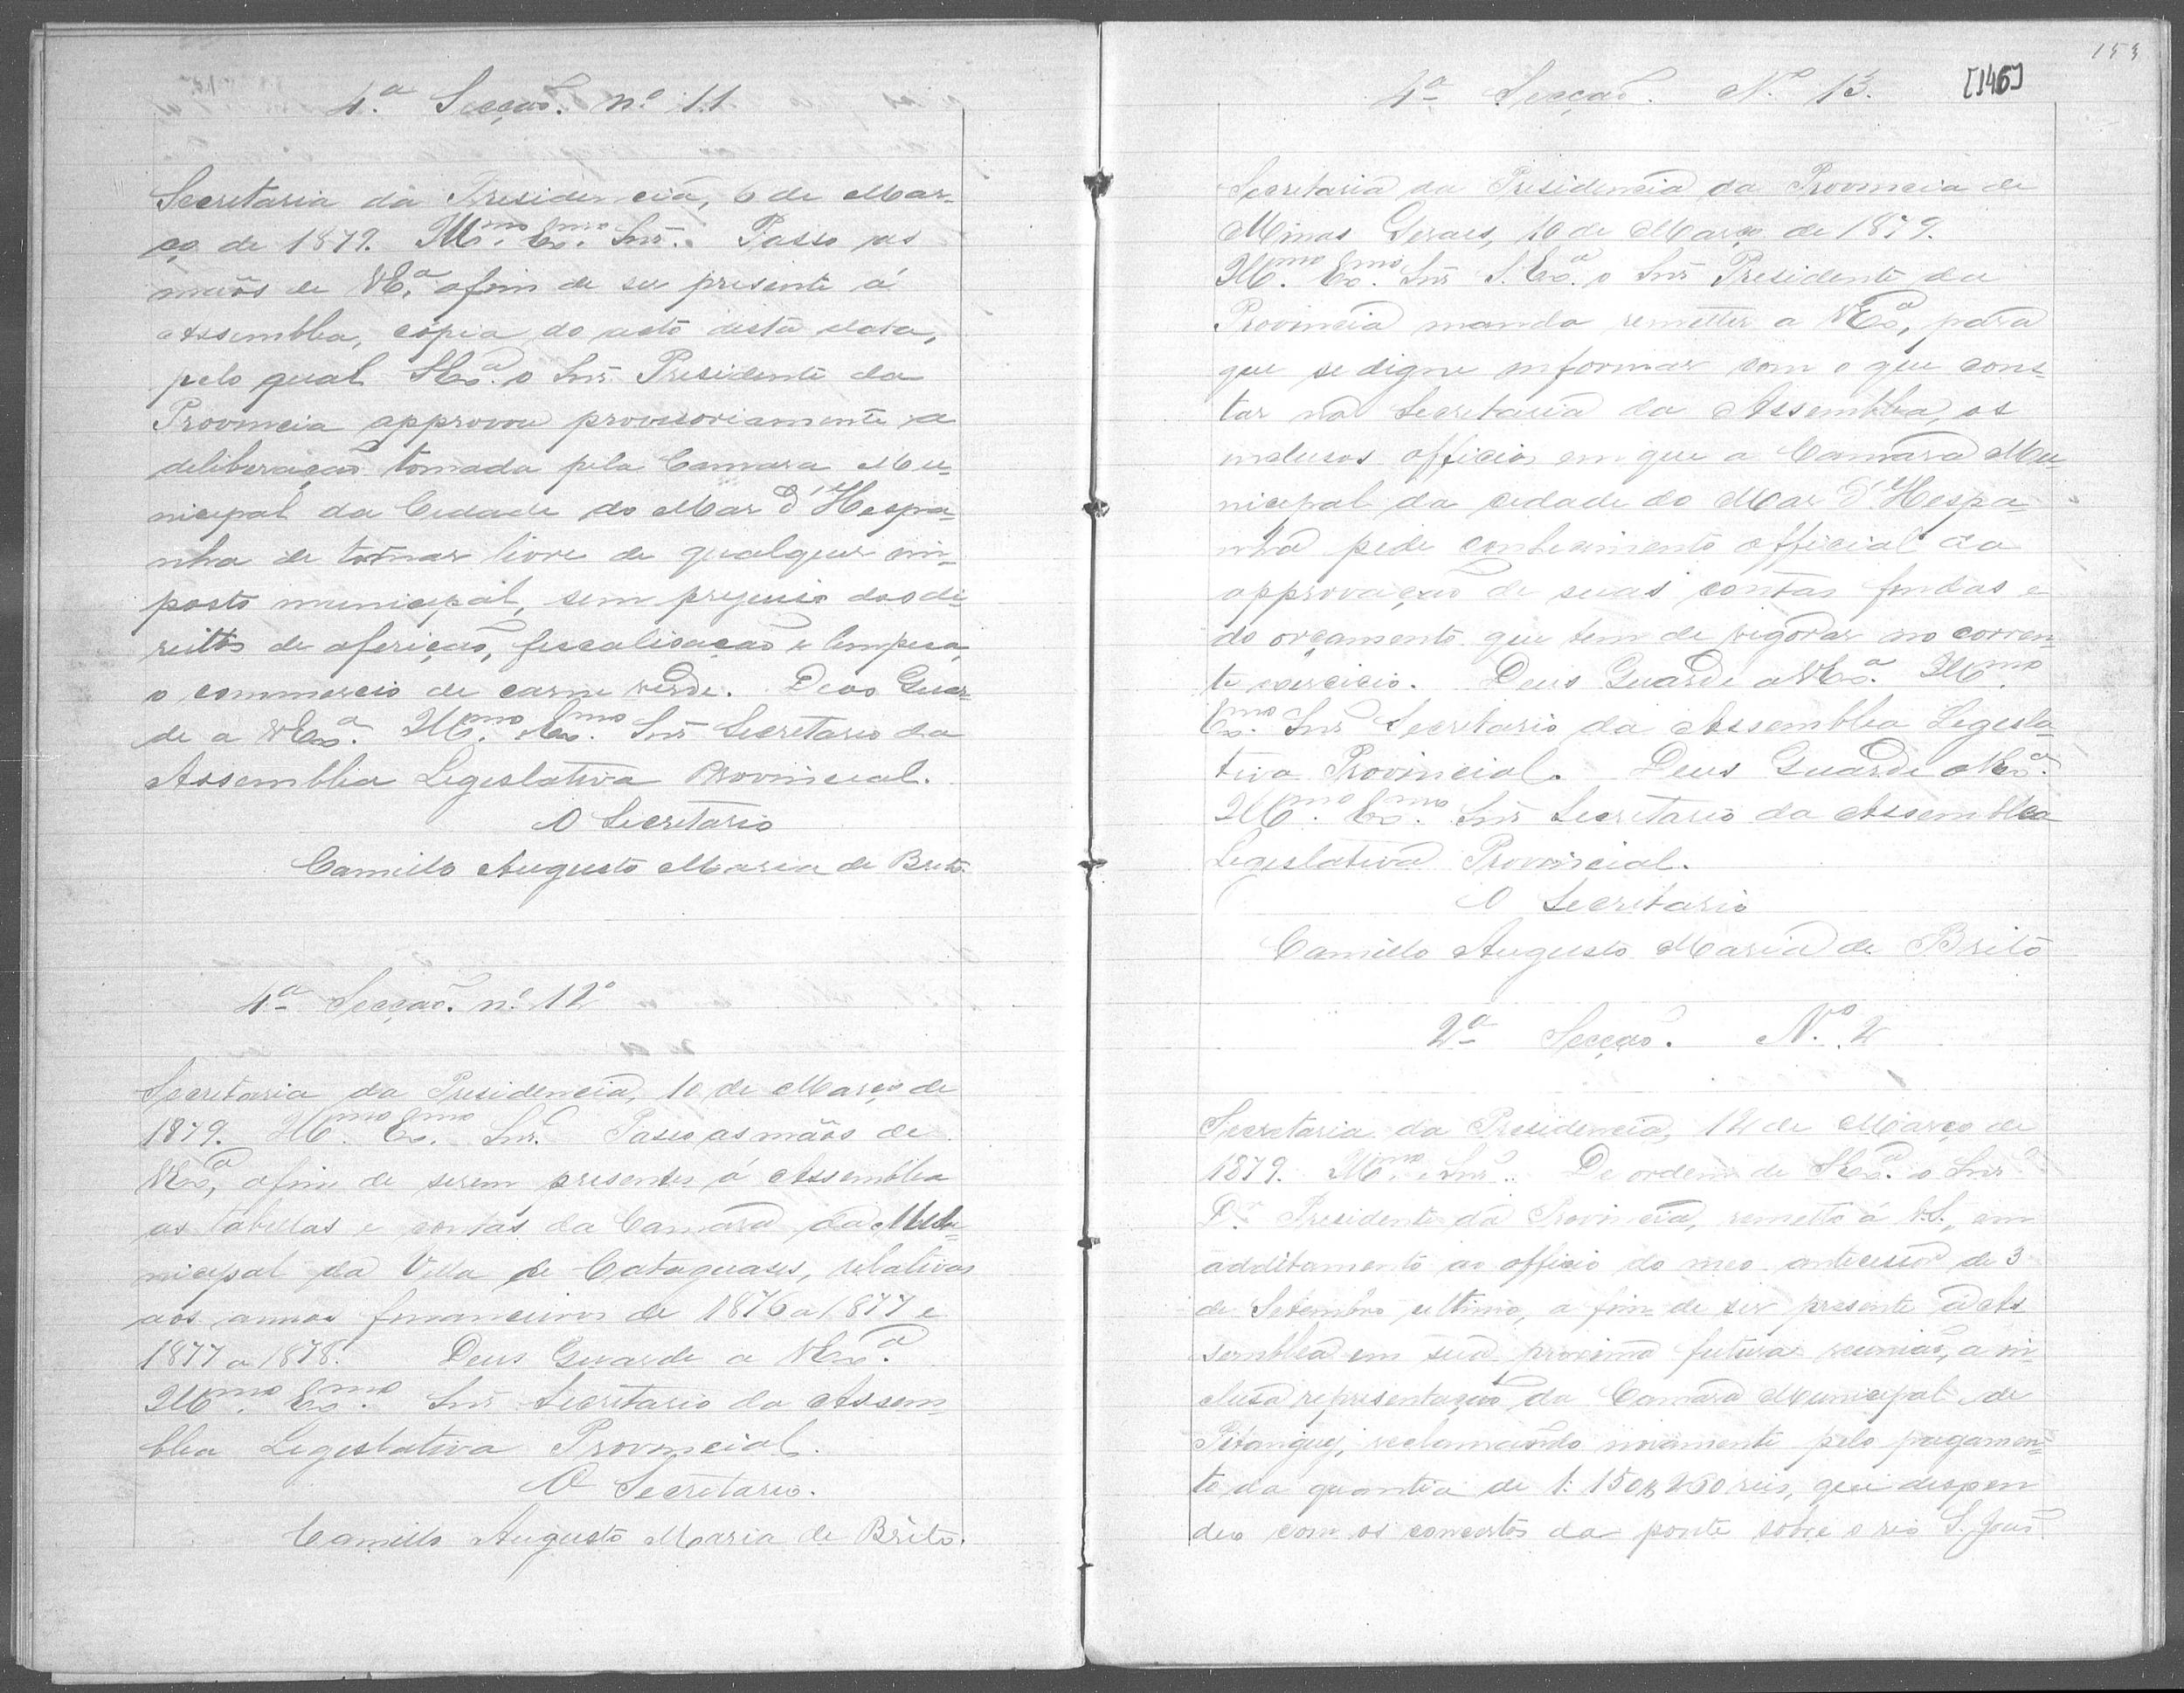 4.ª Secção. nº 11
Secretaria da Presidencia, 6 de Mar-
ço de 1879. Illmo. Exmo. Snr. Passo as
mãos de VExª, afim de ser presente á
Assemblea, copia do acto desta data,
pelo qual SExª. o Snr. Presidente da
Provincia approvou provisoriamente a
deliberação tomada pela Camara Mu-
nicipal da Cidade do Mar d'Hespa-
nha de tornar livre de qualquer im-
posto municipal, sem prejuiso dos di-
reitos de aferição, fiscalisação e limpesa,
o commercio de carne verde. Deos Guar-
de a VExª. Illmo. Exmo. Snr Secretario da
Assemblea Legislativa Provincial.
O Secretario
Camillo Augusto Maria de Brito.
4ª Secção. nº 12º
Secretaria da Presidencia, 10 de Março de
1879. Illmo. Exmo. Snr. Passo as mãos de
VExª, afim de serem presentes á Assemblea
as tabellas e contas da Camara da Mu-
nicipal da Villa de Cataguases, relativas
aos annos financeiros de 1876 a 1877 e
1877 a 1878. Deus Guarde a VExª.
Illmo. Exmo. Snr Secretario da Assem-
blea Legislativa Provincial.
O Secretario.
Camillo Augusto Maria de Brito.
153
[146]
4ª Secção. Nº 13.
Secretaria da Presidencia da Provincia de
Minas Geraes, 10 de Março de 1879.
Illmo. Exmo. Snr S. Exª. o Snr Presidente da
Provincia manda remetter a VExª, para
que se digne informar com o que cons-
tar na Secretaria da Assemblea, os
inclusos officios em que a Camara Mu-
nicipal da cidade do Mar d'Hespa-
nha pede conhecimento official da
approvação de suas contas findas e
do orçamento que tem de vigorar no corren-
te exercicio. Deus Guarde a VExª. Illmo.
Exmo. Snr Secretario da Assemblea Legisla-
tiva Provincial. Deus Guarde a VExª.
Illmo. Exmo. Snr Secretario da Assemblea
Legislativa Provincial.
O Secretario
Camillo Augusto Maria de Brito
2ª Secção. Nº. 2
Secretaria da Presidencia, 12 de Março de
1879. Illmo. Snr. De ordem de SExª. o Snr
Dr. Presidente da Provincia, remetto á V.S., em
additamento ao officio do meo antecessor de 3
de Setembro ultimo, a fim de ser presente á As
semblea em sua proxima futura reunião, a in-
clusa representação da Camara Municipal de
Pitanguy, reclamando novamente pelo pagamen-
to da quantia de 1:150$260 reis, que despen
deo com os concertos da ponte sobre o rio S. João